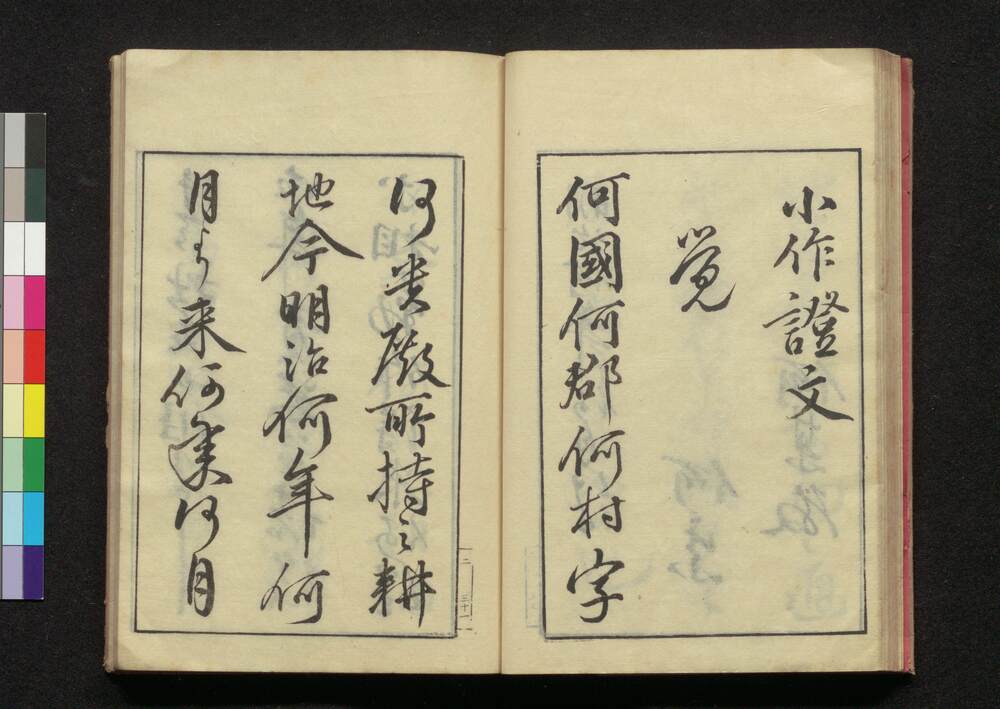 小作證文
覚
何國何郡何村字
何貴殿所持之耕
地今明治何年何
月より来何年何月
三
三十一